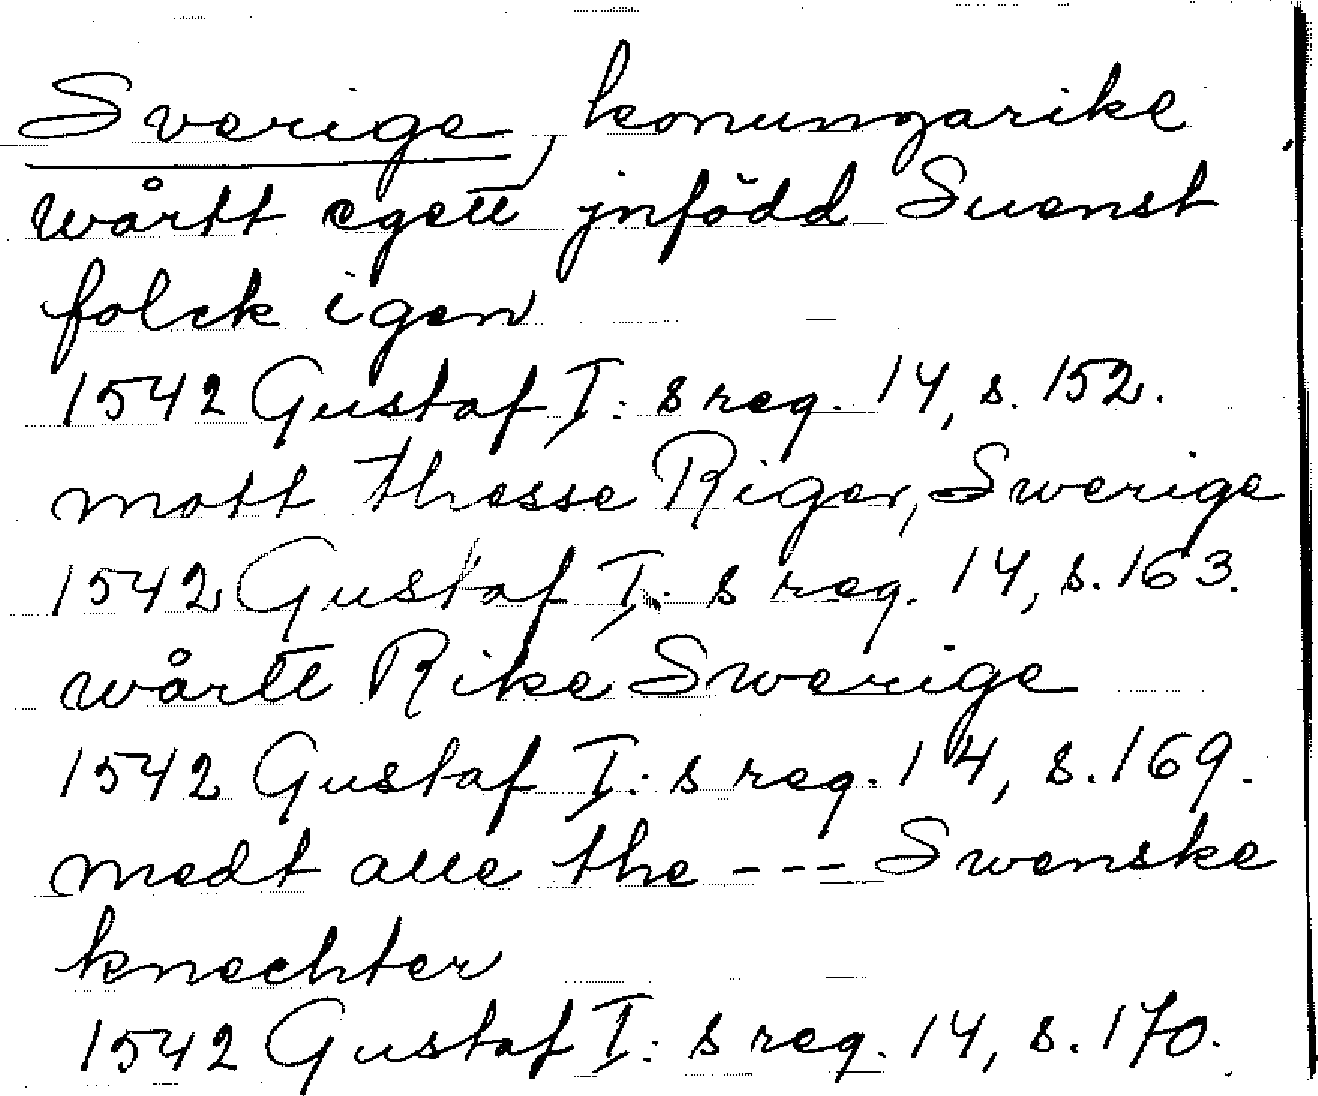 Sverige, konungarike
wårtt egett jnfödd Suenst
folck igen
1542 Gustaf I:s reg. 14, s. 152.
mott thesse Riger, Swerige
1542 Gustaf I:s reg. 14, s. 163.
wårtt Rike Swerige
1542 Gustaf I:s reg. 14, s. 169.
medt alle the --- Swenske
knechter
1542 Gustaf I:s reg. 14, s. 170.